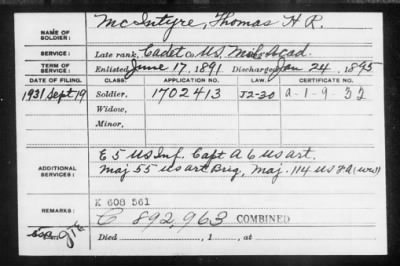 NAME OF SOLDIER: McIntyre, Thomas H R.
SERVICE: Late rank, Cadet Co. US. Mil. Acad.
TERM OF SERVICE: Enlisted June 17, 1891 Discharged Jan 24, 1895
DATE OF FILING. CLASS. APPLICATION NO. LAW. CERTIFICATE NO.
1931 Sept. 19 Soldier, 1702413 J2-30 a-1-9-32
Widow,
Minor,
ADDITIONAL SERVICES: E 5 US Inf. Capt A 6 US art.
Maj 55 US art Brig, Maj. 114 US F A (ww)
K 608 561
REMARKS: C 892,963 COMBINED
Died , 1 , at